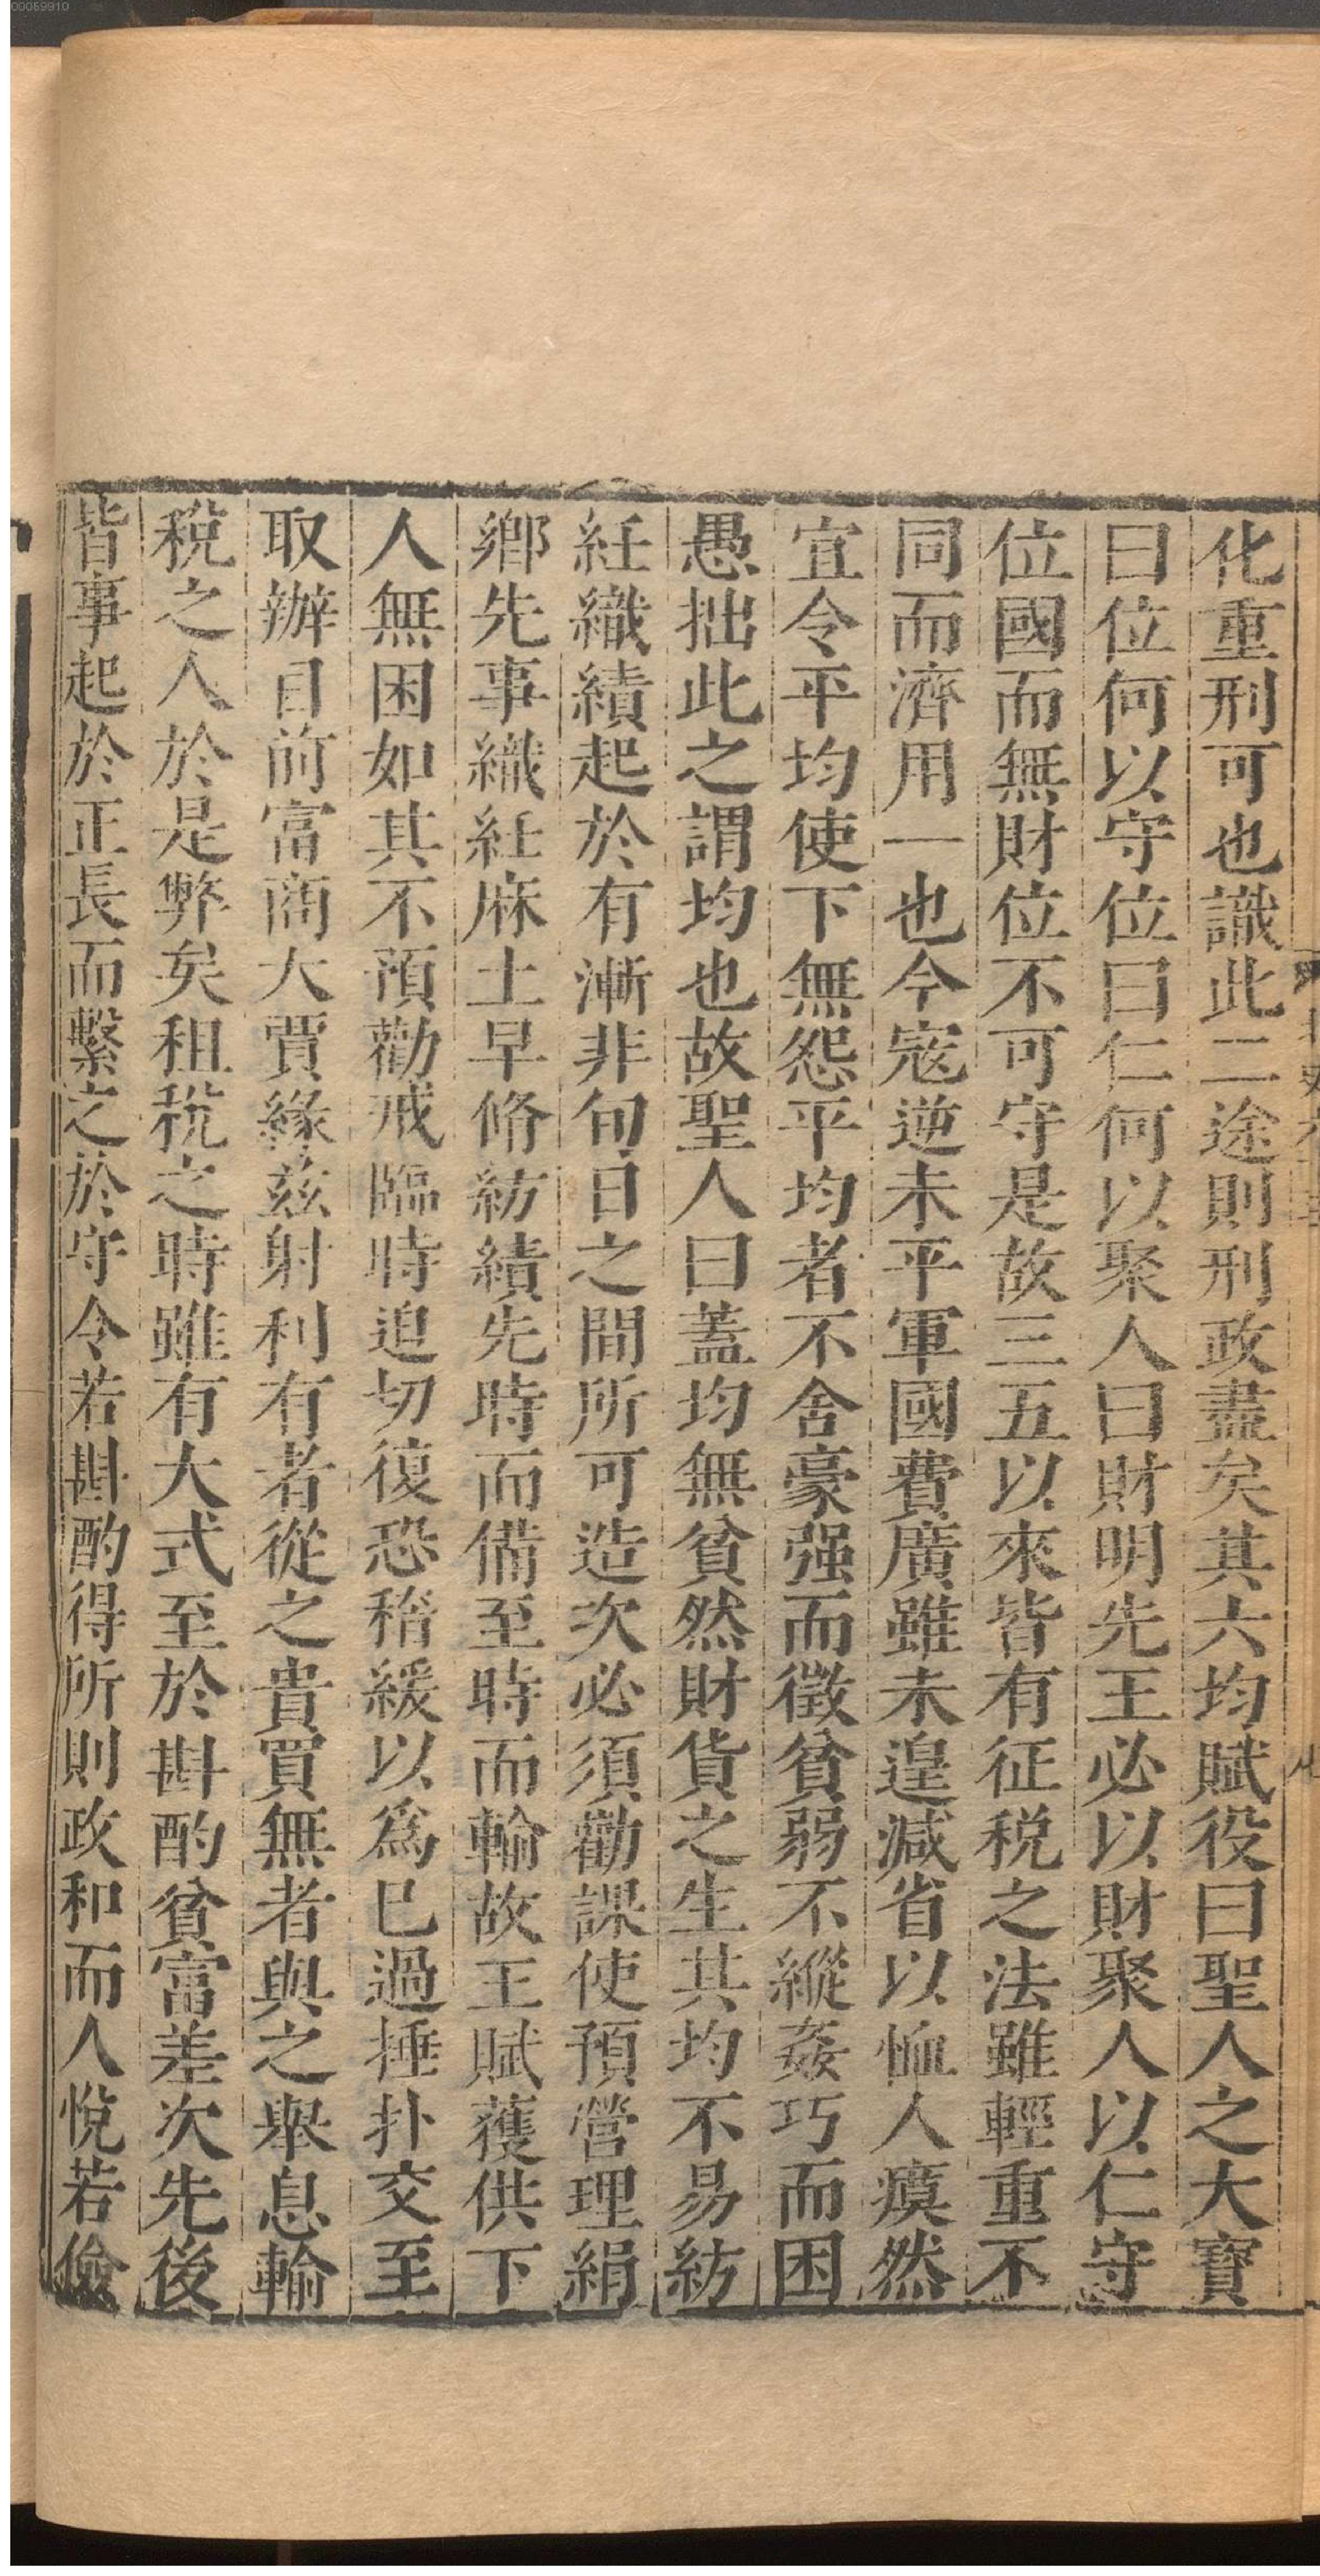 00059910
化重刑可也識此二途則刑政盡矣其六均賦役曰聖人之大寶
曰位何以守位曰仁何以聚人曰財明先王必以財聚人以仁守
位國而無財位不可守是故三五以來皆有征税之法雖輕重不
同而濟用一也今寇逆未平軍國費廣雖未遑減省以恤人瘼然
宜令平均使下無怨平均者不舍豪强而徵貧弱不縱姦巧而困
愚拙此之謂均也故聖人曰蓋均無貧然財貨之生其均不易紡
紝織績起於有漸非旬日之間所可造次必須勸課使預營理絹
鄉先事織紝麻土早脩紡績先時而備至時而輸故王賦獲供下
人無困如其不預勸戒臨時迫切復恐稽緩以爲已過捶扑交至
取辦目前富商大賈緣兹射利有者從之貴買無者與之舉息輸
稅之人於是弊矣租稅之時雖有大式至於斟酌貧富差次先後
皆事起於正長而繫之於守令若斟酌得所則政和而人悅若儉